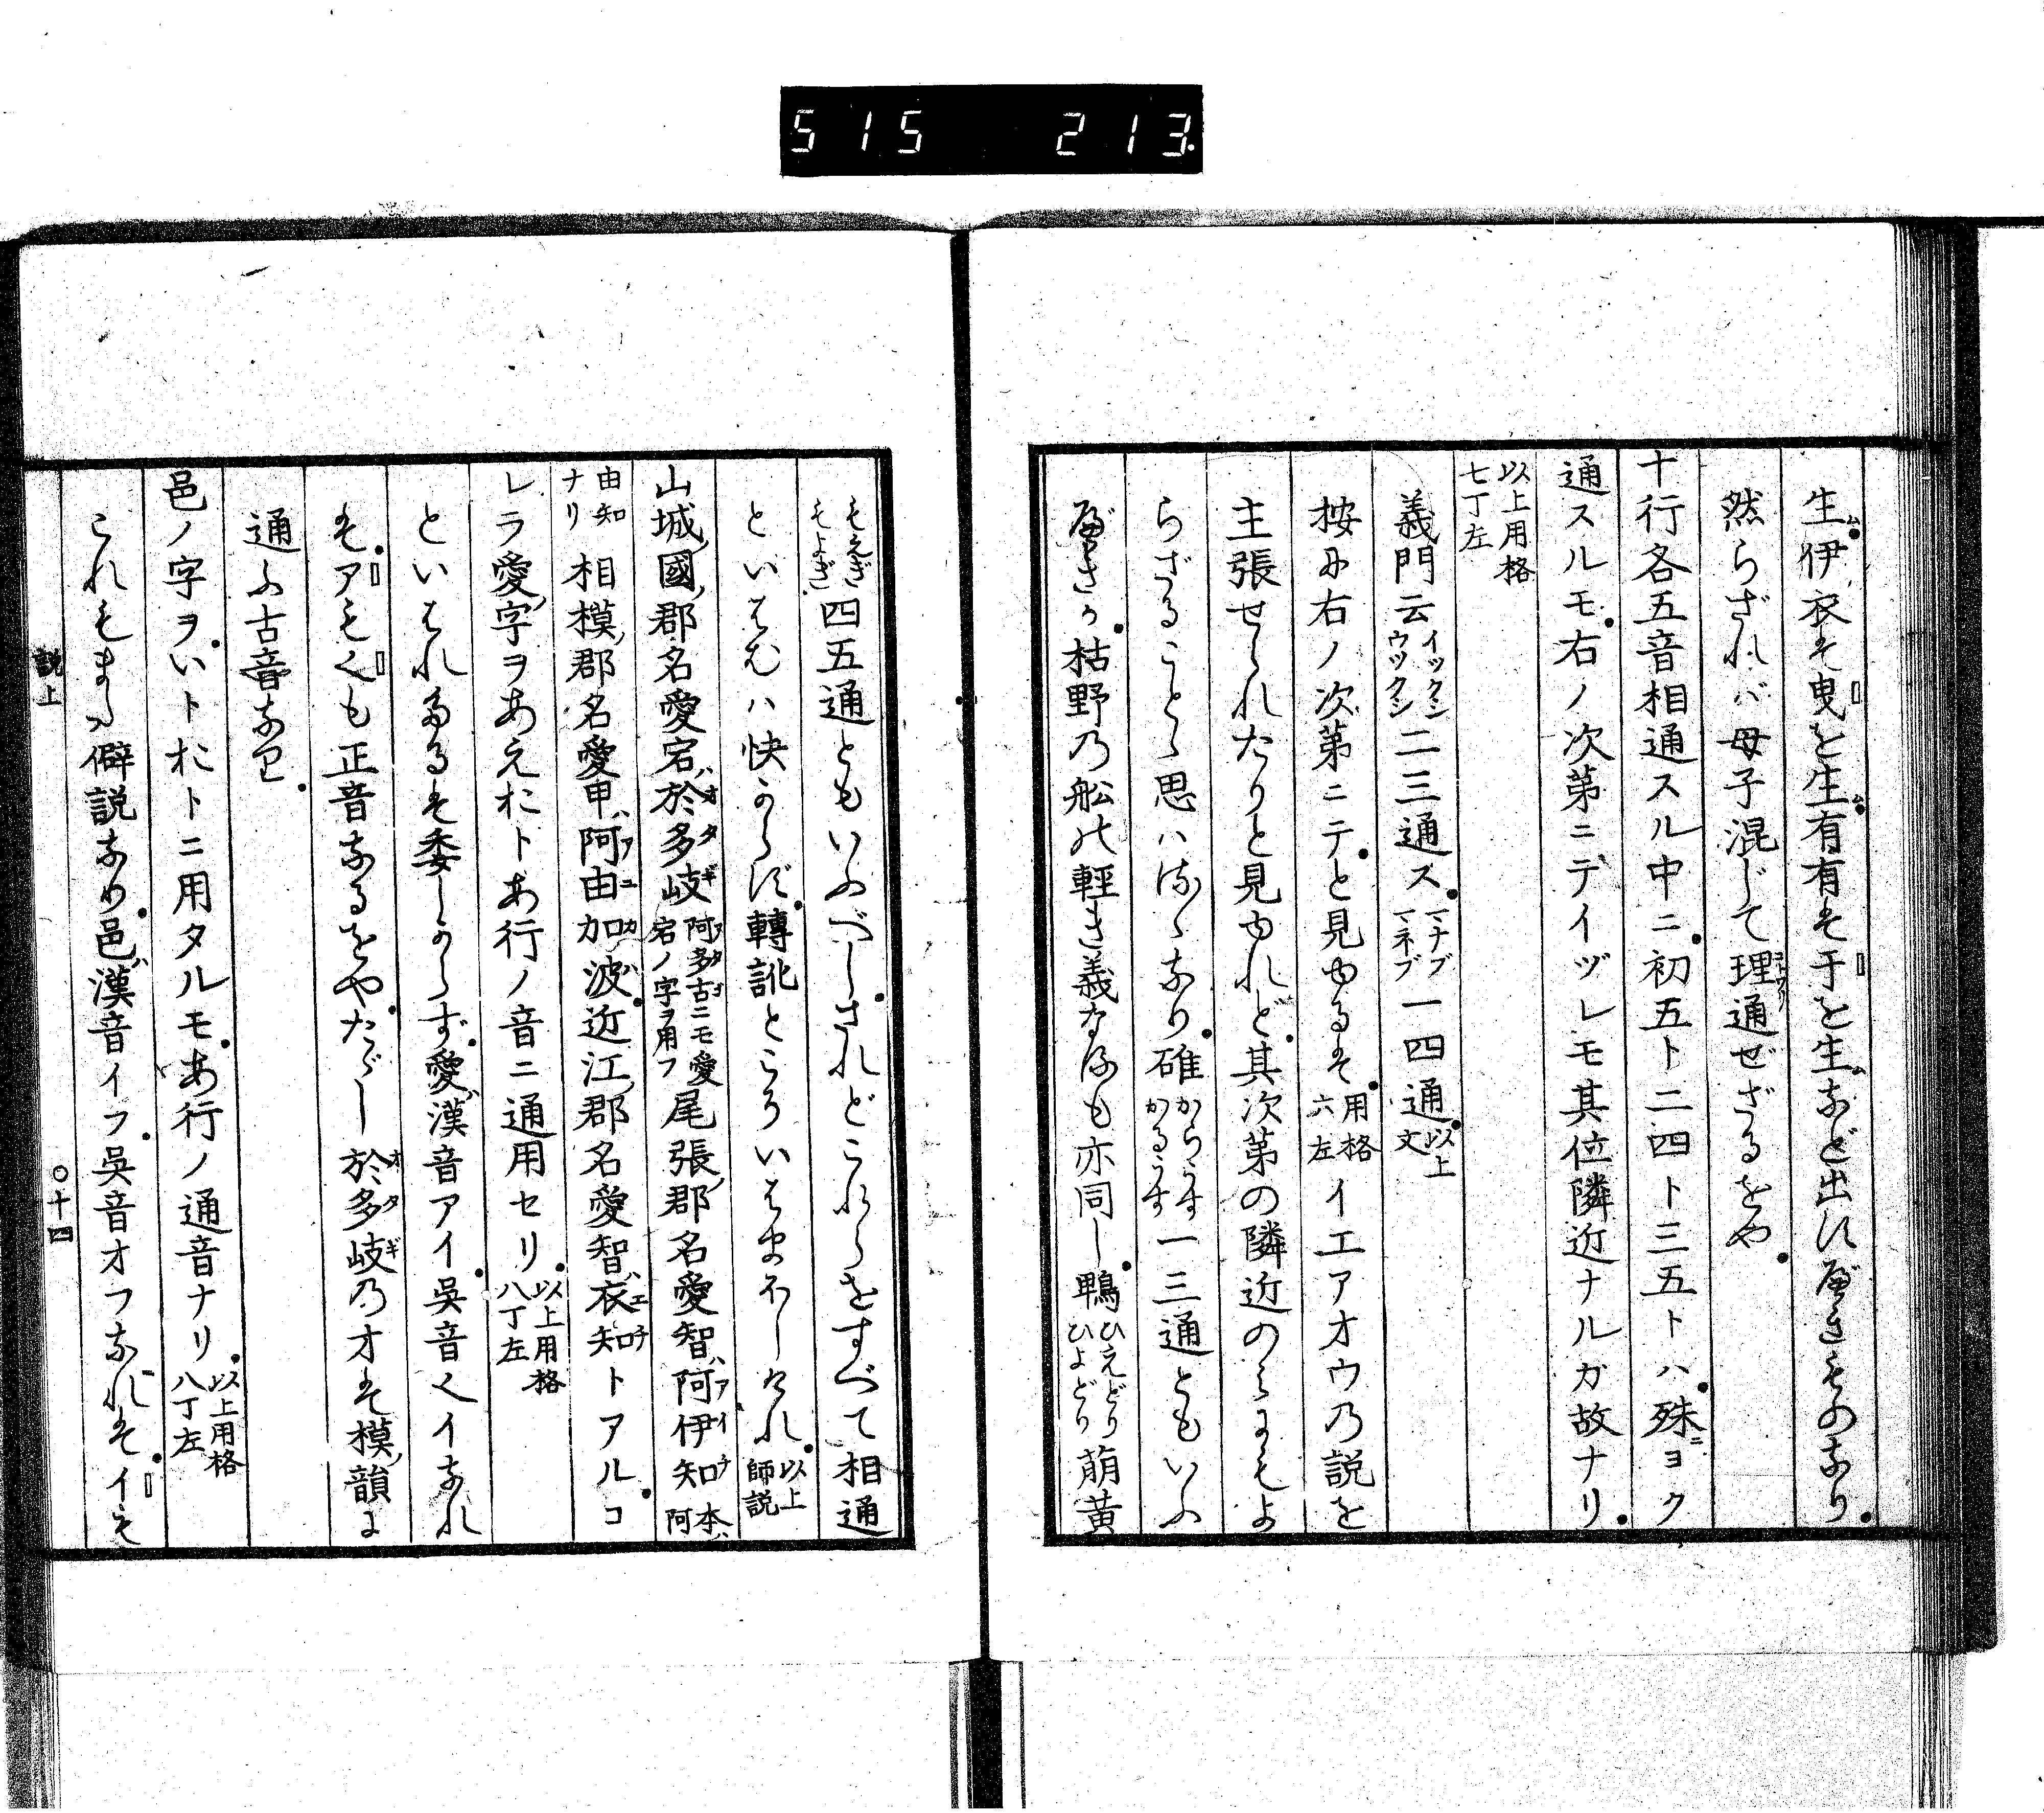 515 213
生伊衣は曳を生有有は于を生など出すべきものなり
然らざれバ母子混じて理通ぜざるをや
十行各五音相通スル中ニ初五ト二四ト三五トハ殊ニヨク
通スルモ右ノ次第ニテイヅレモ其位隣近ナルカ故ナリ
以上用格七丁左
義門云イックシウックシ二三通スマナブマネブ一四通以上文
按に右ノ次第ニテと見ゆるは用格六左イエアオウの説を
主張せられたりと見ゆれど其次第の隣近のみにもよ
らざることゝ思ハるゝなり碓からうすかるうす一三通ともいふ
べきか枯野乃舩の輕き義なるも亦同し鴨ひえどりひよどり萠黄
もえぎもよぎ四五通ともいふべしされどこれらをすべて相通
といはむハ快からず轉訛とこそいはまほしけれ以上師説
山城ノ國ノ郡名愛宕ハ於多岐阿多古ニモ愛宕ノ字ヲ用フ尾張ノ郡名愛智ハ阿伊知本ハ阿
由知ナリ相模ノ郡名愛甲ハ阿由加波近江ノ郡名愛智ハ衣知トアルコ
レラ愛ノ字ヲあえおトあ行ノ音ニ通用セリ以上用格八丁左
といはれたるは委しからず愛ハ漢音アイ呉音エイなれ
はアもエも正音なるをやたゞし於多岐乃オは模ノ韻に
通ふ古音なり
邑ノ字ヲいトおトニ用タルモあ行ノ通音ナリ以上用格八丁左
これもまた僻説なり邑ハ漢音イフ呉音オフなればイも
説上 〇十四